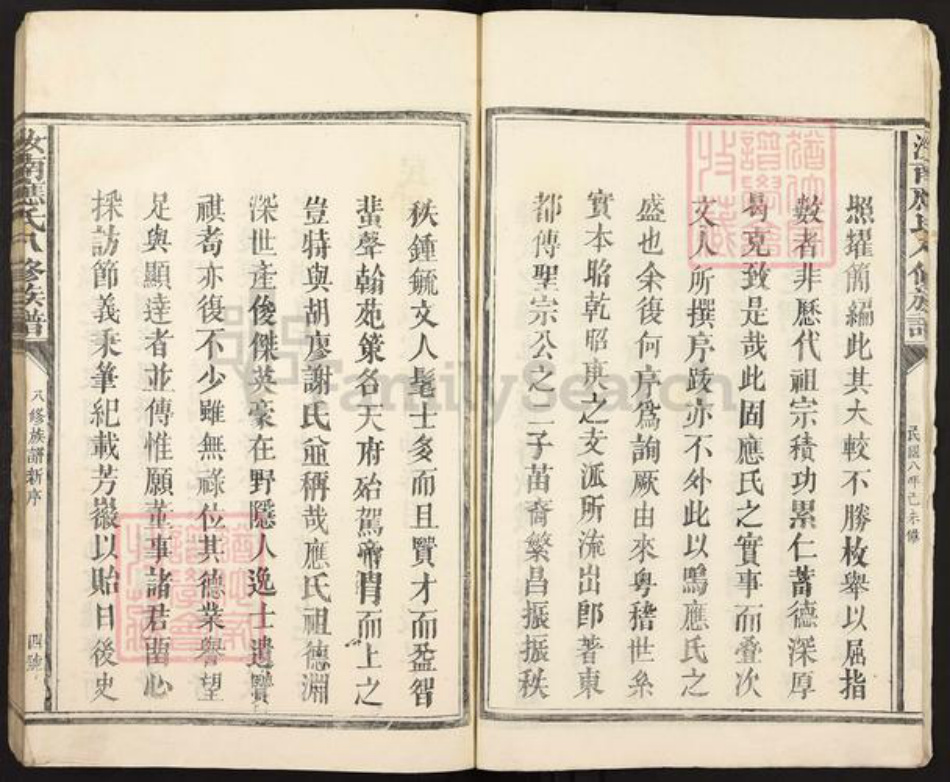 汝南應氏八修族譜
民國八年己未脩
照耀簡編此其大較不勝枚舉以屈指
數者非歷代祖宗積功累仁蓄德深厚
曷克致是哉此固應氏之實事而叠次
文人所撰序跋亦不外此以鳴應氏之
盛也余復何序爲詢厥由來粤稽世系
實本昭乾昭庚之支派所流出郎著東
都傳聖宗公之二子苗裔繁昌振振秩
秩鍾毓文人髦士多而且賢才而益智
蜚聲翰苑策名天府殆駕帝胃而上之
豈特與胡廖謝氏並稱哉應氏祖德淵
深世產俊傑英豪在野隱人逸士遺賢
祺耇亦復不少雖無祿位其德業譽望
足與顯達者並傳惟願董事諸君留心
採訪節義秉筆紀載芳徽以貽日後史
汝南應氏八修族譜
八修族譜新序
四號
FamilySearch